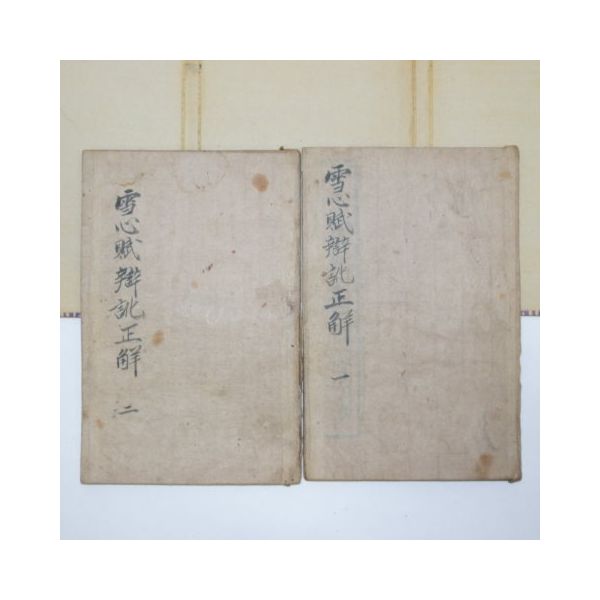 雪心賦辯訛正解 一
雪心賦辯訛正解 二